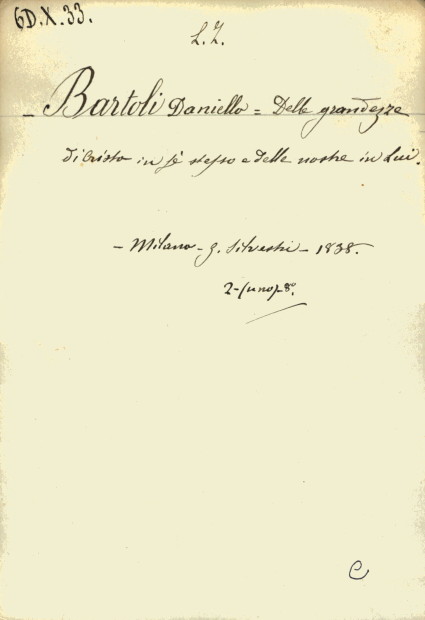 6D.X.33.
L.I.
- Bartoli Daniello = Delle grandezze
di Cristo in sè stesso e delle nostre in Lui.
- Milano - G. Silvestri - 1838.
2-(uno)-8º.
C